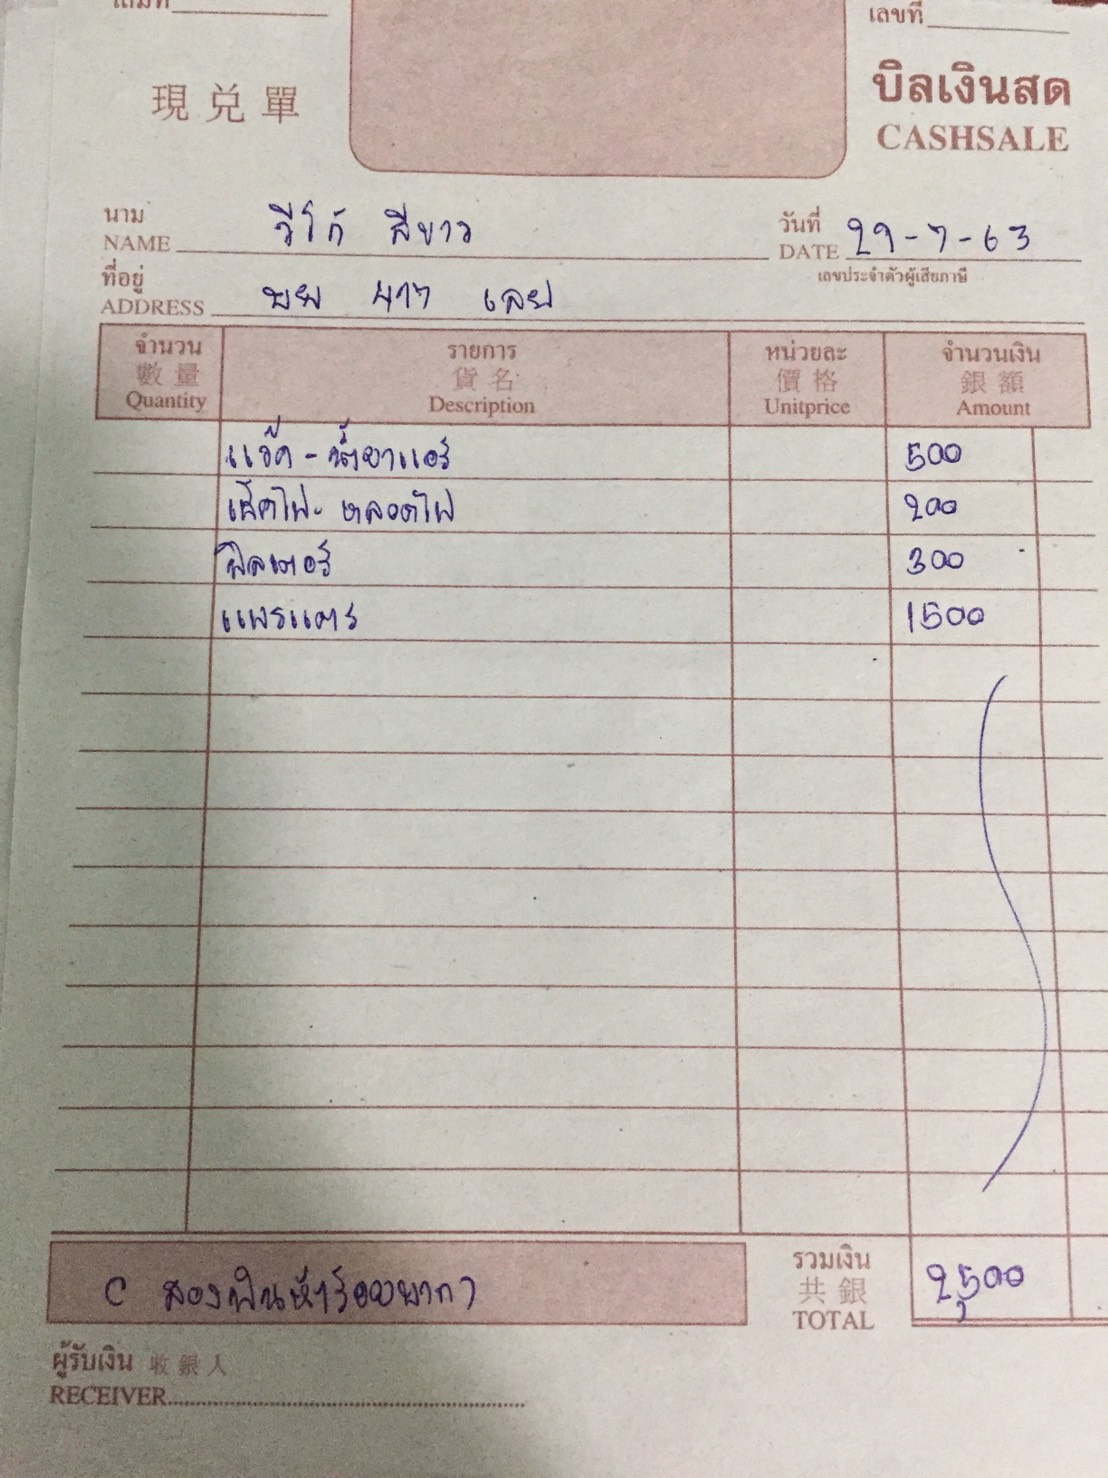 เล่มที่
เลขที่
現兑單
บิลเงินสด
CASHSALE
นาม
NAME วีโก้ สีขาว
วันที่
DATE 29-7-63
ที่อยู่
ADDRESS เลย
เลขประจำตัวผู้เสียภาษี
จำนวน รายการ หน่วยละ จำนวนเงิน
數量 貨名 價格 銀額
Quantity Description Unitprice Amount
แว๊ค-น้ำยาแอร์ 500
เช็คไฟ-หลอดไฟ 200
ฟิลเตอร์ 300
1500
รวมเงิน
共銀
TOTAL 2,500
สองพันห้าร้อยบาท
ผู้รับเงิน 收銀人
RECEIVER